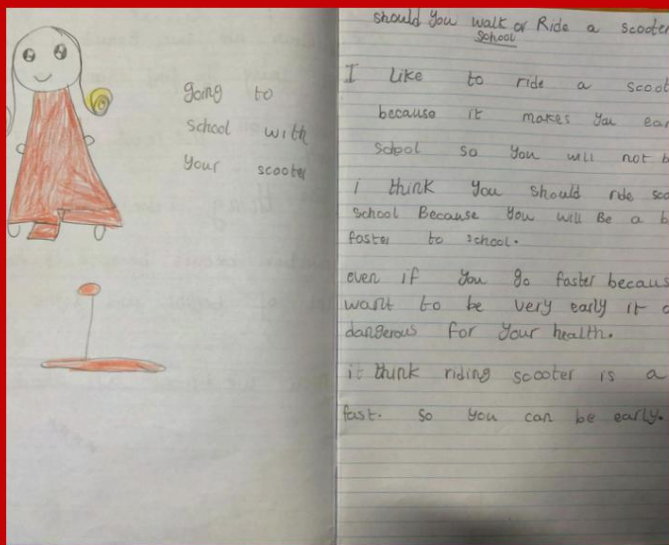 going to
school with
your scooter
should you walk or Ride a scooter
school
I Like to ride a
because it makes you
school so you will not
i think you should ride
School Because you will Be a
faster to school.
even if you go faster
want to be very early it
dangerous for your health.
it think riding scooter is a
fast. so you can be early.